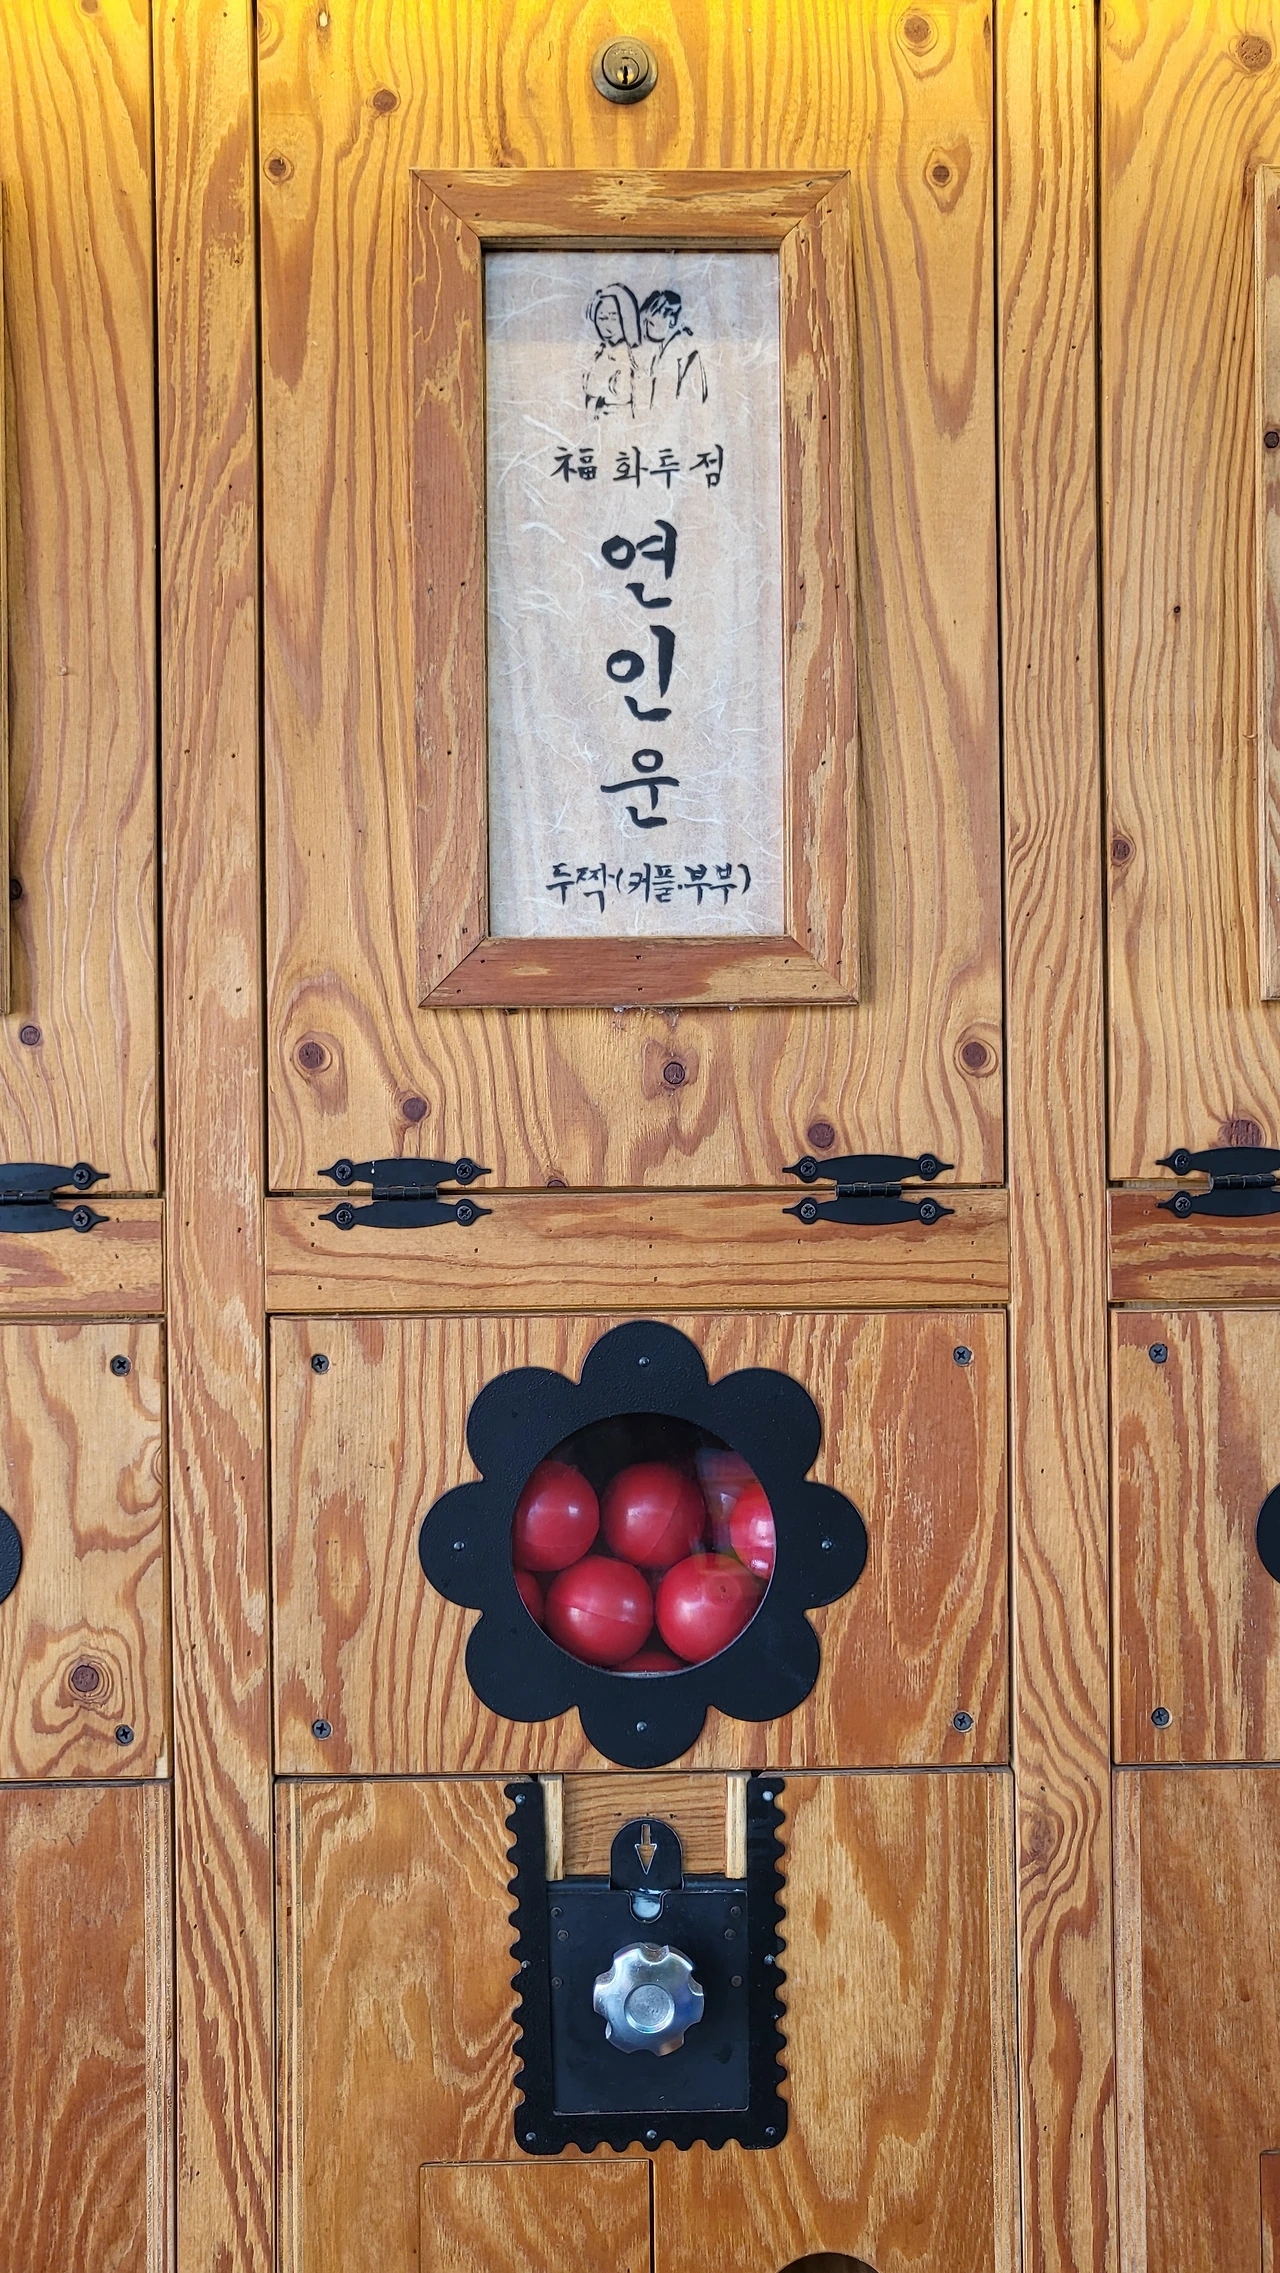 福 화투점
연
인
운
두짝(커플.부부)